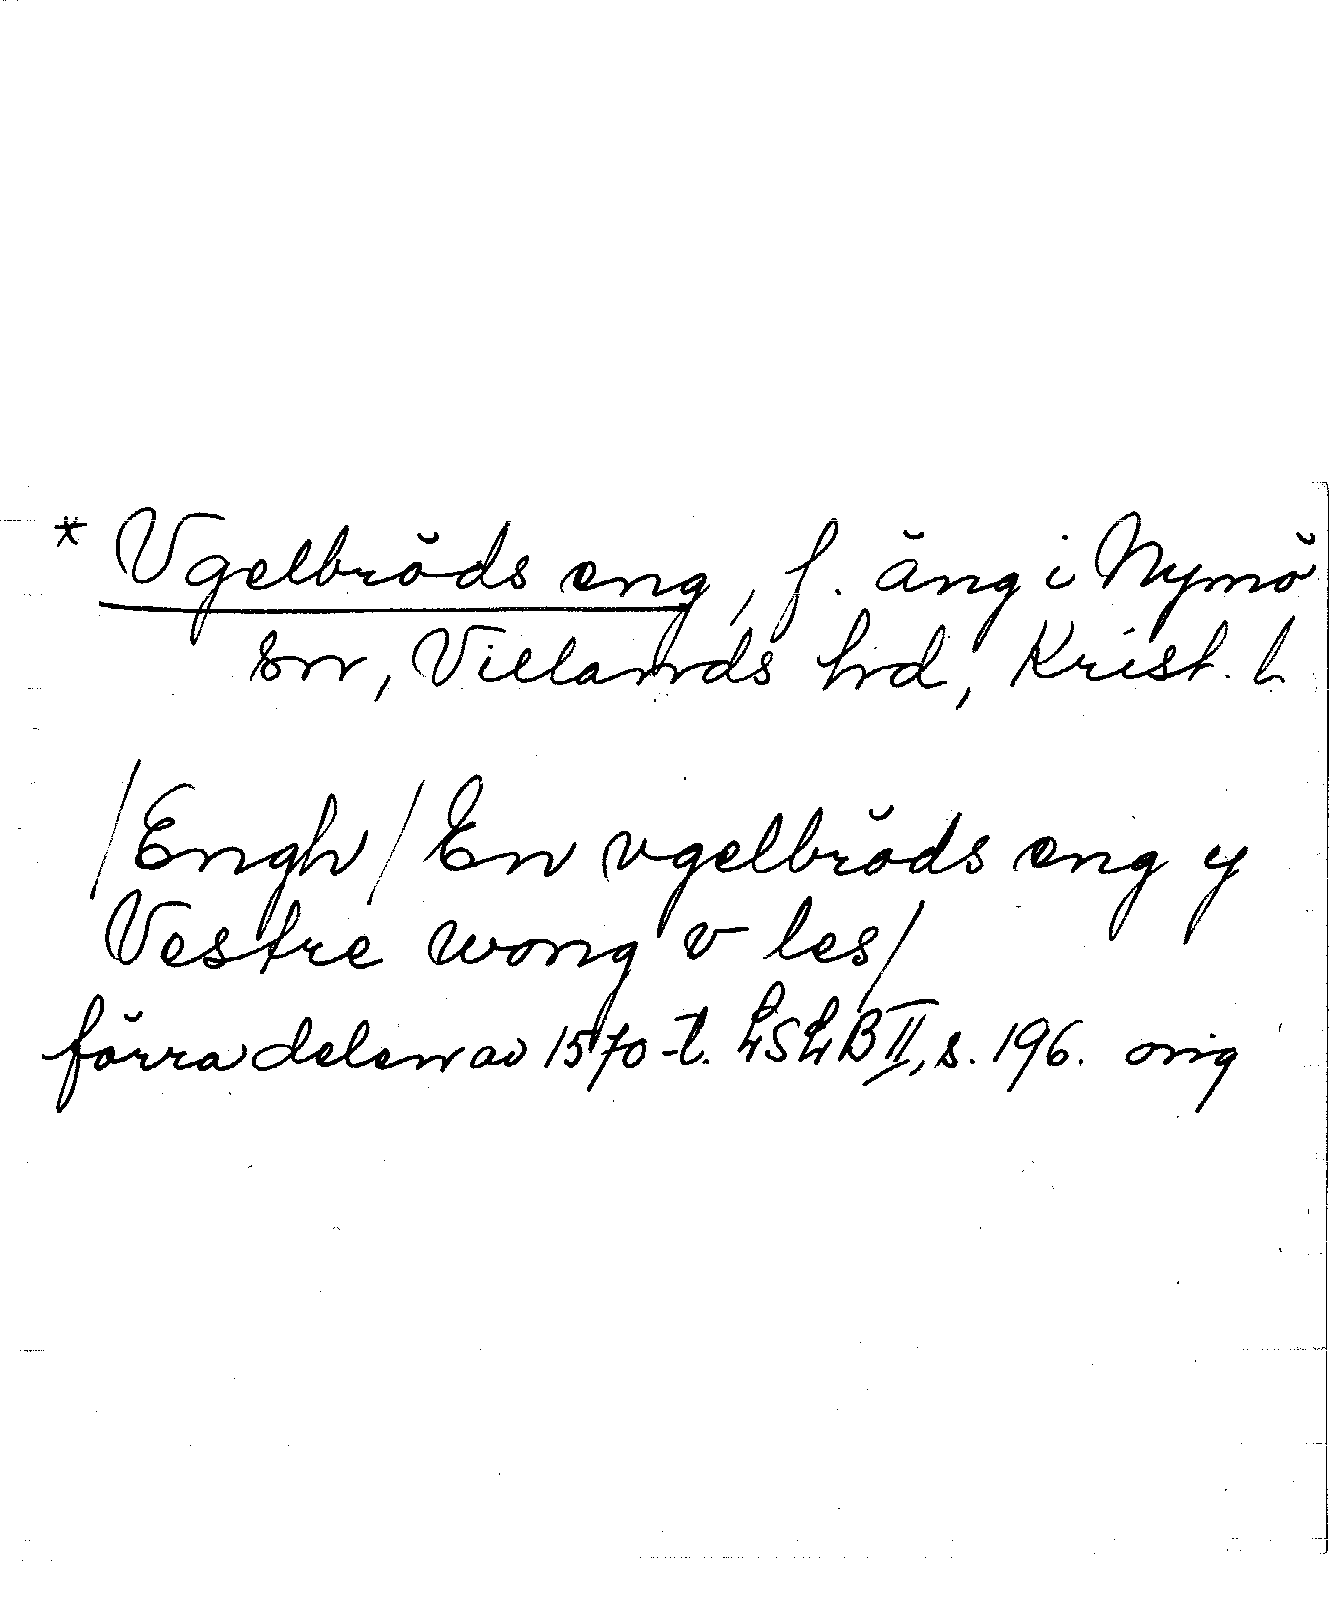 * Vgelbröds eng, f. äng i Nymö
sn, Villands hd, Krist. l.
/Engh/ En vgelbröds eng y
Vestre wong v les/
förra delen av 1570-t. LSLB II, s. 196. orig